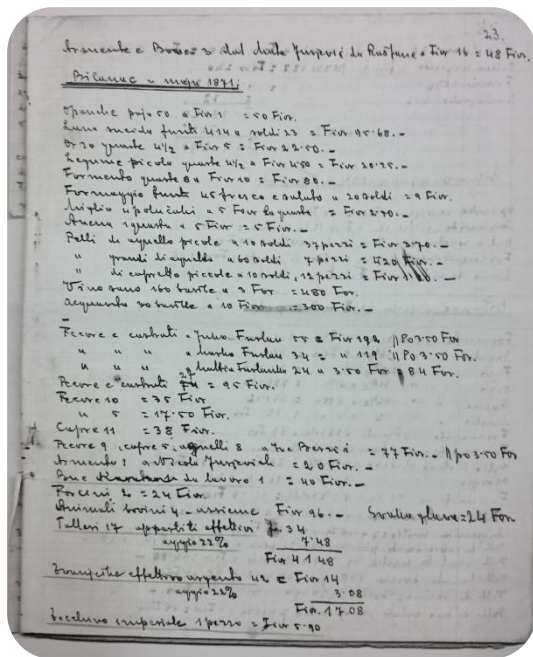 23.
Armente e Bove 3 dal Mate Jurjević da Ruštane a Fior 16 = 48 Fior.
Bilanac u maju 1871:
Opanche paja 50 a Fior 1 = 50 Fior.
Lana sucida funti 414 a soldi 23 = Fior 95.68.-
Orzo quarte 4 1/2 a Fior 5 = Fior 22.50.-
Legume picolo quarte 4 1/2 a Fior 4.50 = Fior 20.25.-
Formento quarte 8 a Fior 10 = Fior 80.-
Formaggio funti 45 fresco e salato a 20 soldi = 9 Fior.
Miglio a Fior la quarta = Fior 2.70.-
Avena 1 quarta a 5 Fior = 5 Fior.-
Pelli di agnello picole a 10 soldi 37 pezzi = Fior 3.70.-
" grandi di agnello a 60 soldi 7 pezzi = 4.20 Fior.-
" di capretto piccole a 10 soldi, 12 pezzi = Fior 1.20.-
Vino sano 160 barille a 3 For = 480 For.
acquavita 30 barille a 10 Fior = 300 Fior.-
Pecore e castrati a Furlan 55 = Fior 192 Po 3.50 For
" " " a Marko Furlan 34 = " 119 Po 3.50 For.
" " " 24 a 3.50 For 84 For.
Pecore e castrati 27 = 95 Fior.
Pecore 10 = 35 Fior
" 5 = 17.50 Fior.
Capre 11 = 38 Fior.
Pecore 9, capre 5, agnelli 8 a = 77 Fior.- po 3.50 For
Armenta 1 = 20 Fior.-
Bue da lavoro 1 = 40 Fior.-
Porcini 2 = 24 Fior.
Animali bovini 4 - assieme Fior 96.- Svaka glava = 24 For
Talleri 17 effettivi F 34
aggio 22% 7.48
Fior 41.48
effettivo argento 42 = Fior 14
aggio 22% 3.08
Fior. 17.08
Zecchino imperiale 1 pezzo = Fior 5.90